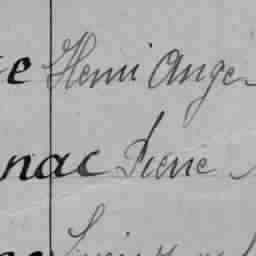 e Henri Ange
nac Pierre